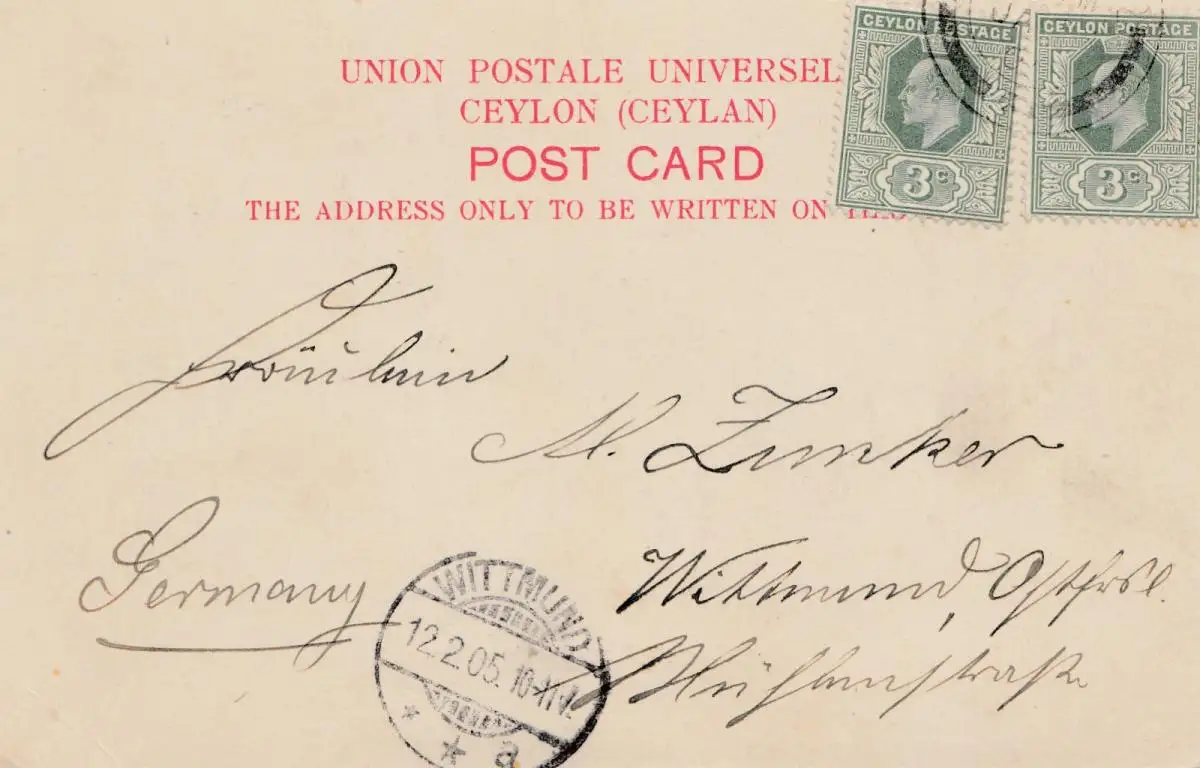 CEYLON POSTAGE CEYLON POSTAGE
UNION POSTALE UNIVERSEL
CEYLON (CEYLAN)
POST CARD
3c 3c
THE ADDRESS ONLY TO BE WRITTEN ON THIS
Fräulein
M. Zunker
Germany
Wittmund, Ostfrsl.
Mühlenstraße
WITTMUND
12.2.05. 10-11V.
* * a